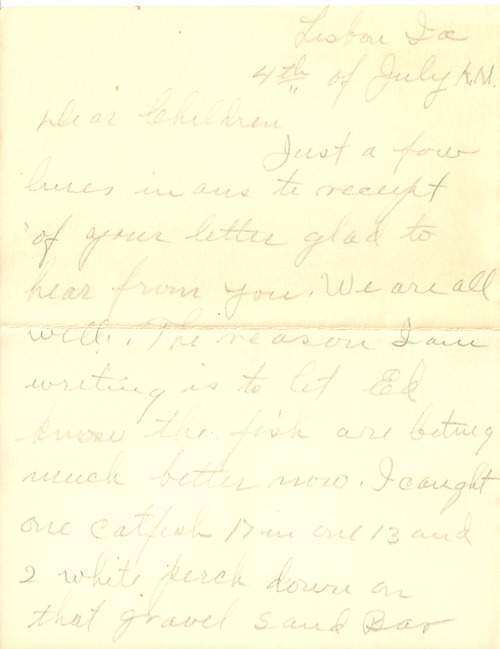 Lisbon Ia
4th of July A.M.
Dear Children
Just a few
lines in ans to receipt
of your letter glad to
hear from you. We are all
well. The reason I am
writing is to let Ed
know the fish are biting
much better now. I caught
one catfish 17 in one 13 and
2 white perch down on
that gravel sand Bar